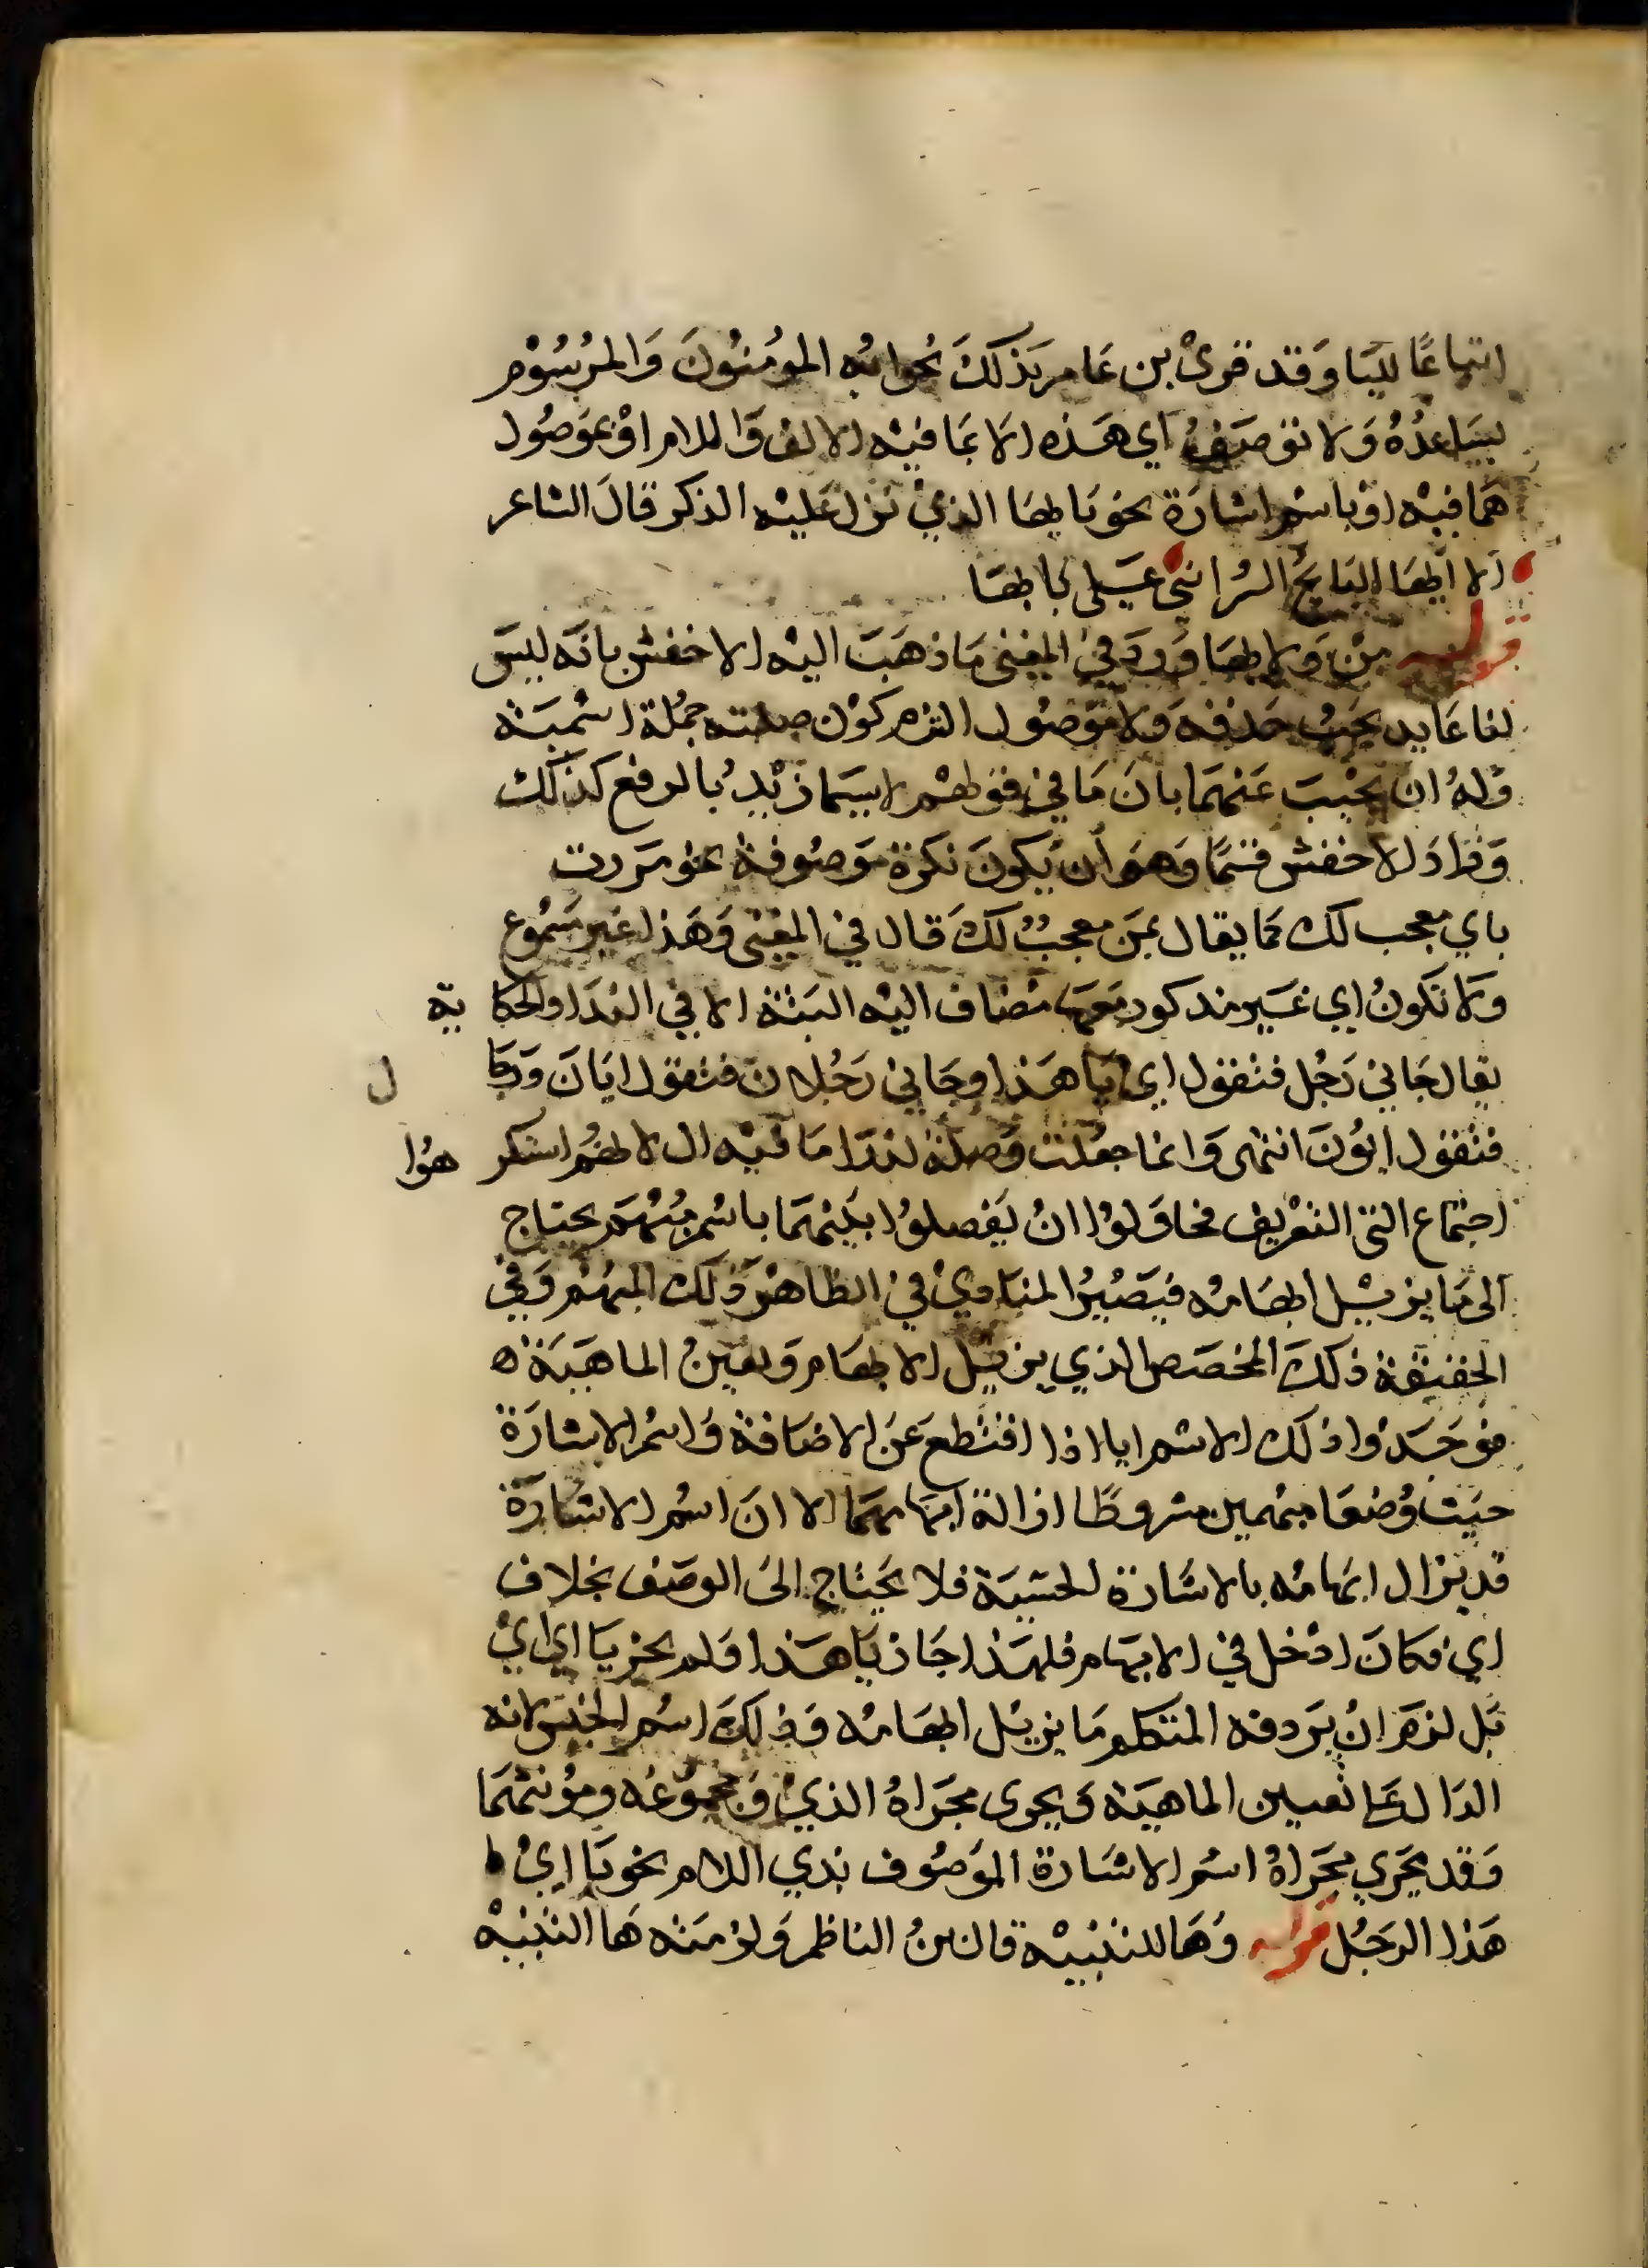 اتباعًا للبنا وقد قرئ بن عامر بذلك نحو ايه المومنون والمرسوم
يساعده ولا توصف اي هذه الا بما فيه الالف واللام او بموصول
هما فيه او باسم اشارة نحو يا ايها الذي نزل عليه الذكر قال الشاعر
الا ايها النابح السر انني على
قوله من ولا ايها ورد في المغني ما ذهب اليه الاخفش بانه ليس
لنا عايد يجب حذفه ولا موصول التزم كون صلته جملة اسمية
وله ان يجيب عنهما بان ما في قولهم لاسيما زيد بالرفع كذلك
وزاد الاخفش قسمًا وهو ان يكون نكرة موصوفة نحو مررت
باي معجب لك كما يقال بمن معجب لك قال في المغني وهذا غير مسموع
ولا تكون اي غير مذكور معها مضاف اليه البتة الا في الندا والحكاية
يقال جاني رجل فتقول اي يا هذا وجاني رجلان فتقول ايان ورجال
فتقول ايون انتهى وانما جعلت وصلة لندا ما فيه ال لانهم استكرهوا
اجتماع التي التعريف فحاولوا ان يفصلوا بينهما باسم مبهم يحتاج
الى ما يزيل ابهامه فيصير المنادى في الظاهر ذلك المبهم وفي
الحقيقة ذلك المخصص الذي يزيل الابهام ويعين الماهية ه
فوجدوا ذلك الاسم ايا اذا اقتطع عن الاضافة واسم الاشارة
حيث وضعا مبهمين مشروطًا ازالة ابهامهما الا ان اسم الاشارة
قد يزال ابهامه بالاشارة الحسية فلا يحتاج الى الوصف بخلاف
اي فكان ادخل في الابهام فلهذا جاز يا هذا ولم يجز يا اي
بل لزم ان يردفه المتكلم ما يزيل ابهامه وذلك اسم الجنس لانه
الدال على تعيين الماهية ويجرى مجراه الذي ومجموعه ومؤنثهما
وقد يجري مجراه اسم الاشارة الموصوف بذي اللام نحو يا اي
هذا الرجل قوله وها للتنبيه قال بن الناظم ولزمته ها التنبيه